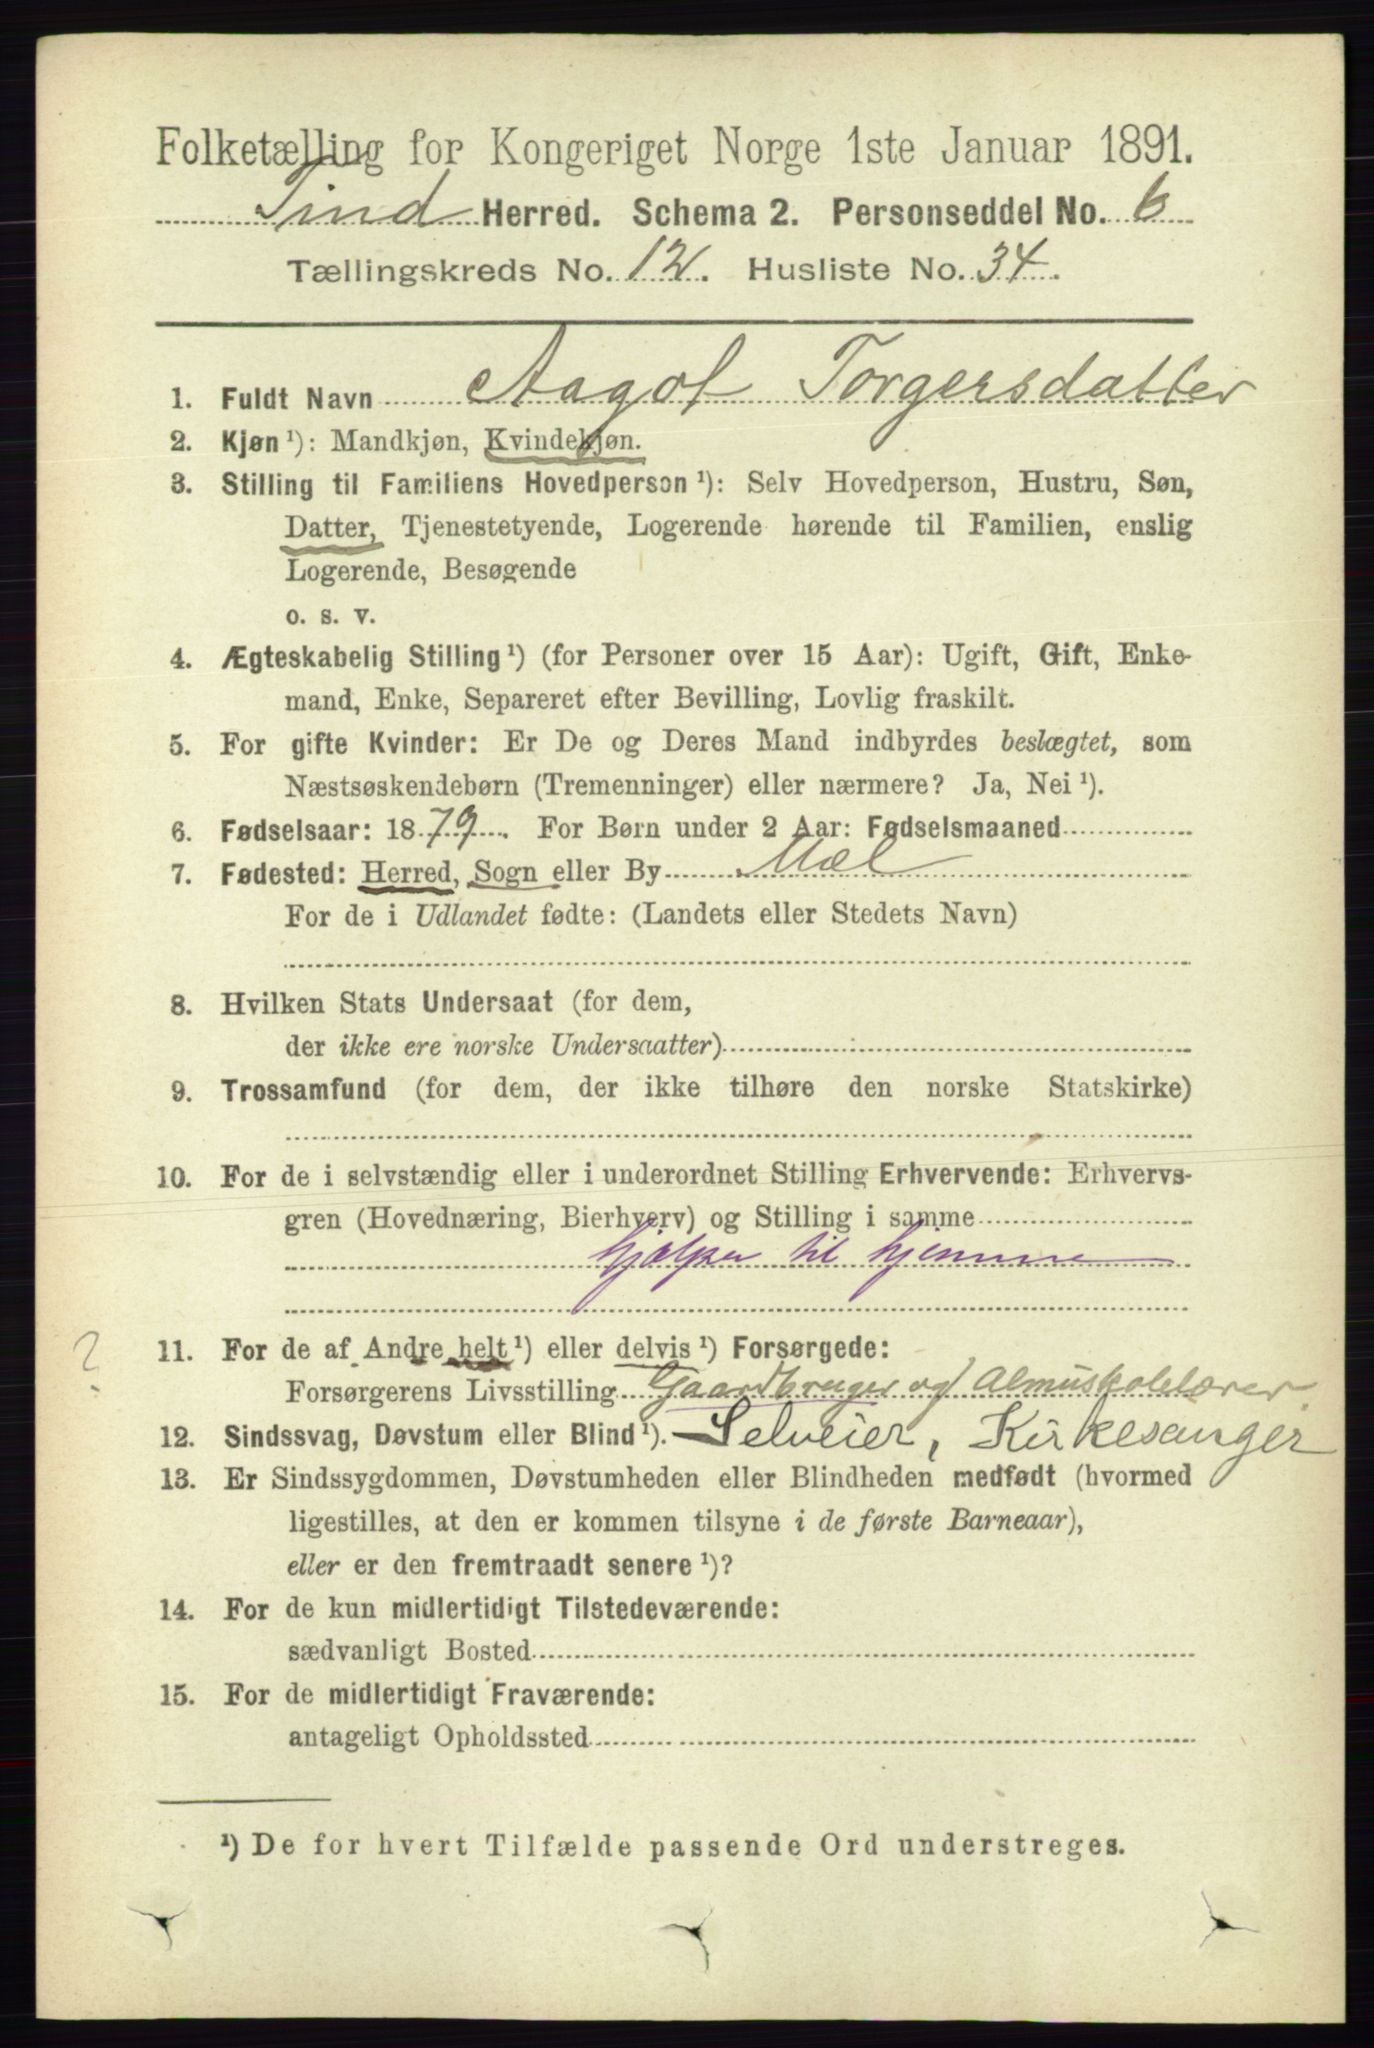 Folketælling for Kongeriget Norge 1ste Januar 1891.
Tind Herred. Schema 2. Personseddel No. 6
Tællingskreds No. 12. Husliste No. 34.
1. Fuldt Navn Aagot Torgersdatter
2. Kjøn ¹): Mandkjøn, Kvindekjøn.
3. Stilling til Familiens Hovedperson ¹): Selv Hovedperson, Hustru, Søn,
Datter, Tjenestetyende, Logerende hørende til Familien, enslig
Logerende, Besøgende
o. s. v.
4. Ægteskabelig Stilling ¹) (for Personer over 15 Aar): Ugift, Gift, Enke-
mand, Enke, Separeret efter Bevilling, Lovlig fraskilt.
5. For gifte Kvinder: Er De og Deres Mand indbyrdes beslægtet, som
Næstsøskendebørn (Tremenninger) eller nærmere? Ja, Nei ¹).
6. Fødselsaar: 1879. For Børn under 2 Aar: Fødselsmaaned
7. Fødested: Herred, Sogn eller By Mæl
For de i Udlandet fødte: (Landets eller Stedets Navn)
8. Hvilken Stats Undersaat (for dem,
der ikke ere norske Undersaatter)
9. Trossamfund (for dem, der ikke tilhøre den norske Statskirke)
10. For de i selvstændig eller i underordnet Stilling Erhvervende: Erhvervs-
gren (Hovednæring, Bierhverv) og Stilling i samme
hjælper til hjemme
?
11. For de af Andre helt ¹) eller delvis ¹) Forsørgede:
Forsørgerens Livsstilling Gaardbruger og Almuskolelærer
12. Sindssvag, Døvstum eller Blind ¹). Selveier, Kirkesanger
13. Er Sindssygdommen, Døvstumheden eller Blindheden medfødt (hvormed
ligestilles, at den er kommen tilsyne i de første Barneaar),
eller er den fremtraadt senere ¹)?
14. For de kun midlertidigt Tilstedeværende:
sædvanligt Bosted
15. For de midlertidigt Fraværende:
antageligt Opholdssted
¹) De for hvert Tilfælde passende Ord understreges.